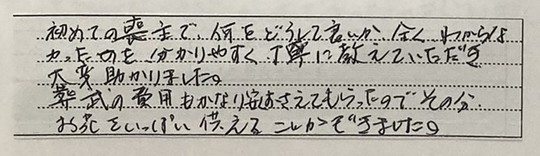 初めての喪主で、何をどうして良いか全くわからな
かった物を分かりやすく丁寧に教えていただき
大変助かりました。
葬式の費用もかなりおさえてもらったのでその分
お花をいっぱい供えることができました。